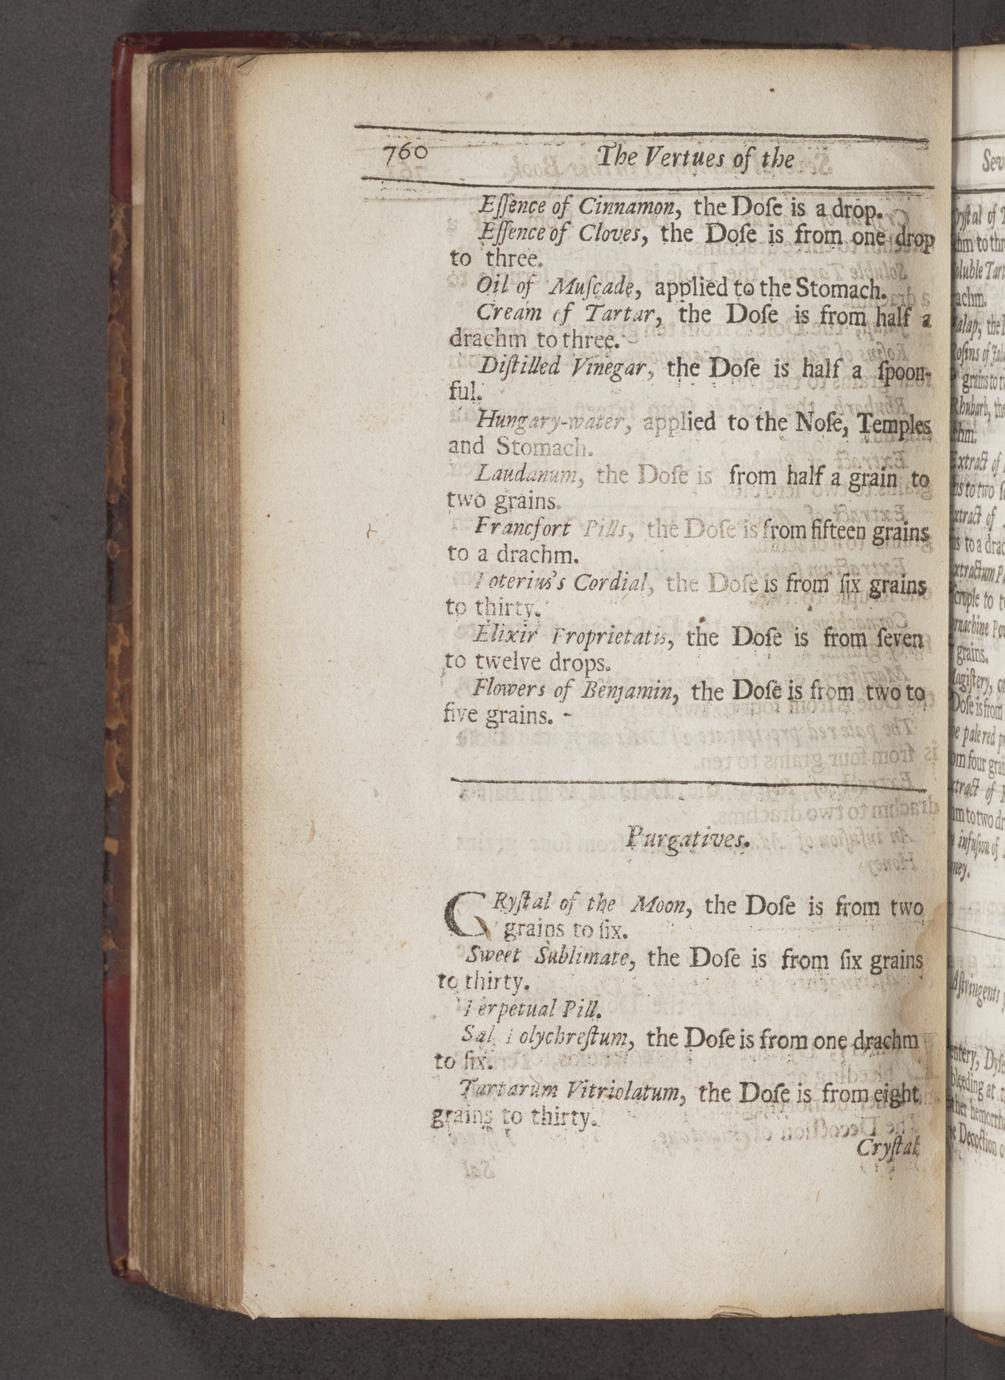 760 The Vertues of the
Eſſence of Cinnamon, the Doſe is a drop.
Eſſence of Cloves, the Doſe is from one drop
to three.
Oil of Muſcade, applied to the Stomach.
Cream of Tartar, the Doſe is from half a
drachm to three.
Diſtilled Vinegar, the Doſe is half a ſpoon-
ful.
Hungary-water, applied to the Noſe, Temples
and Stomach.
Laudanum, the Doſe is from half a grain to
two grains.
Francfort Pills, the Doſe is from fifteen grains
to a drachm.
Poterius's Cordial, the Doſe is from ſix grains
to thirty.
Elixir Proprietatis, the Doſe is from ſeven
to twelve drops.
Flowers of Benjamin, the Doſe is from two to
five grains.
Purgatives.
CRyſtal of the Moon, the Doſe is from two
grains to ſix.
Sweet Sublimate, the Doſe is from ſix grains
to thirty.
Perpetual Pill.
Sal Polychreſtum, the Doſe is from one drachm
to ſix.
Tartarum Vitriolatum, the Doſe is from eight
grains to thirty.
Cryſtal